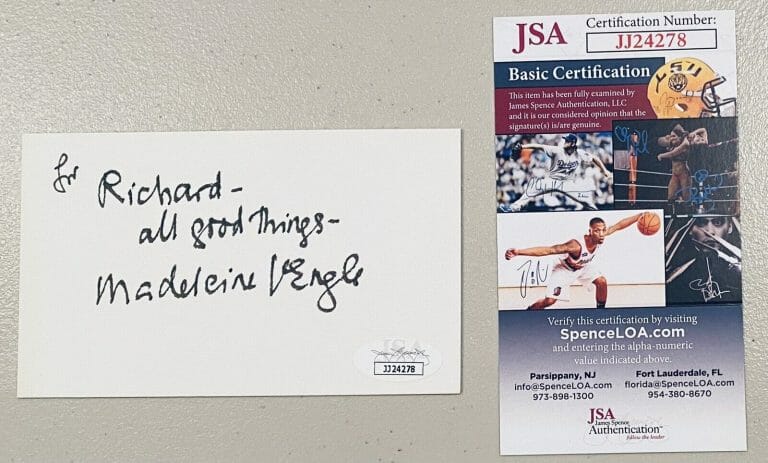 for Richard-
all good Things-
Madeleine L'Engle
JSA
JJ24278
JSA
Certification Number:
JJ24278
Basic Certification
This item has been fully examined by
James Spence Authentication, LLC
and it is our considered opinion that the
signature(s) is/are genuine.
LSU
Dodgers
Verify this certification by visiting
SpenceLOA.com
and entering the alpha-numeric
value indicated above.
Parsippany, NJ
info@SpenceLOA.com
973-898-1300
Fort Lauderdale, FL
florida@SpenceLOA.com
954-380-8670
JSA
James Spence
Authentication™
follow the leader